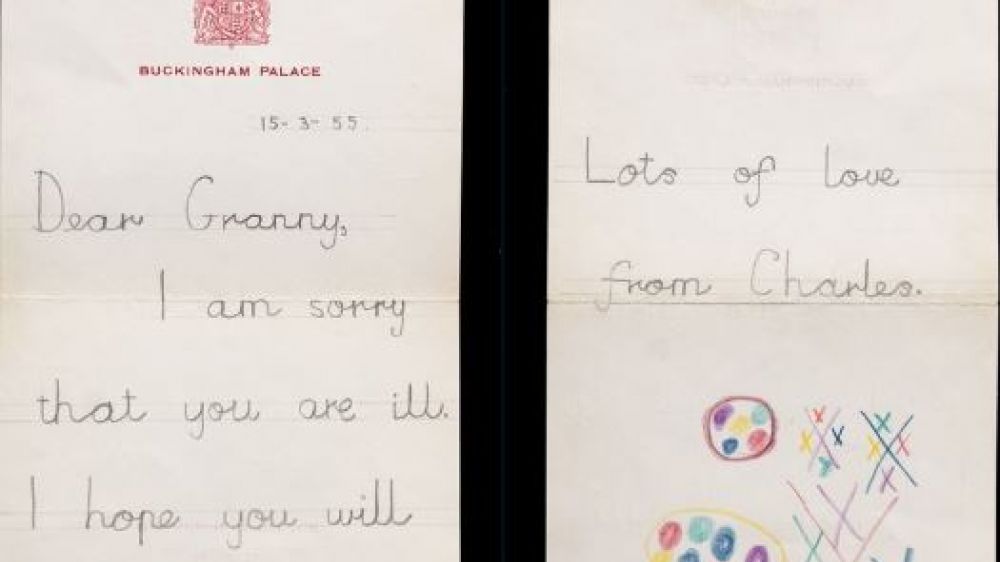 BUCKINGHAM PALACE
15-3-55.
Dear Granny,
I am sorry
that you are ill.
I hope you will
Lots of love
from Charles.